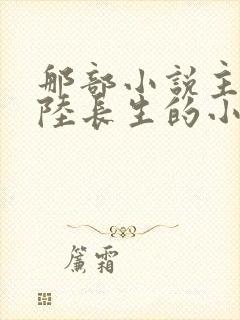 那部小說主
陸長生的小
簾霜